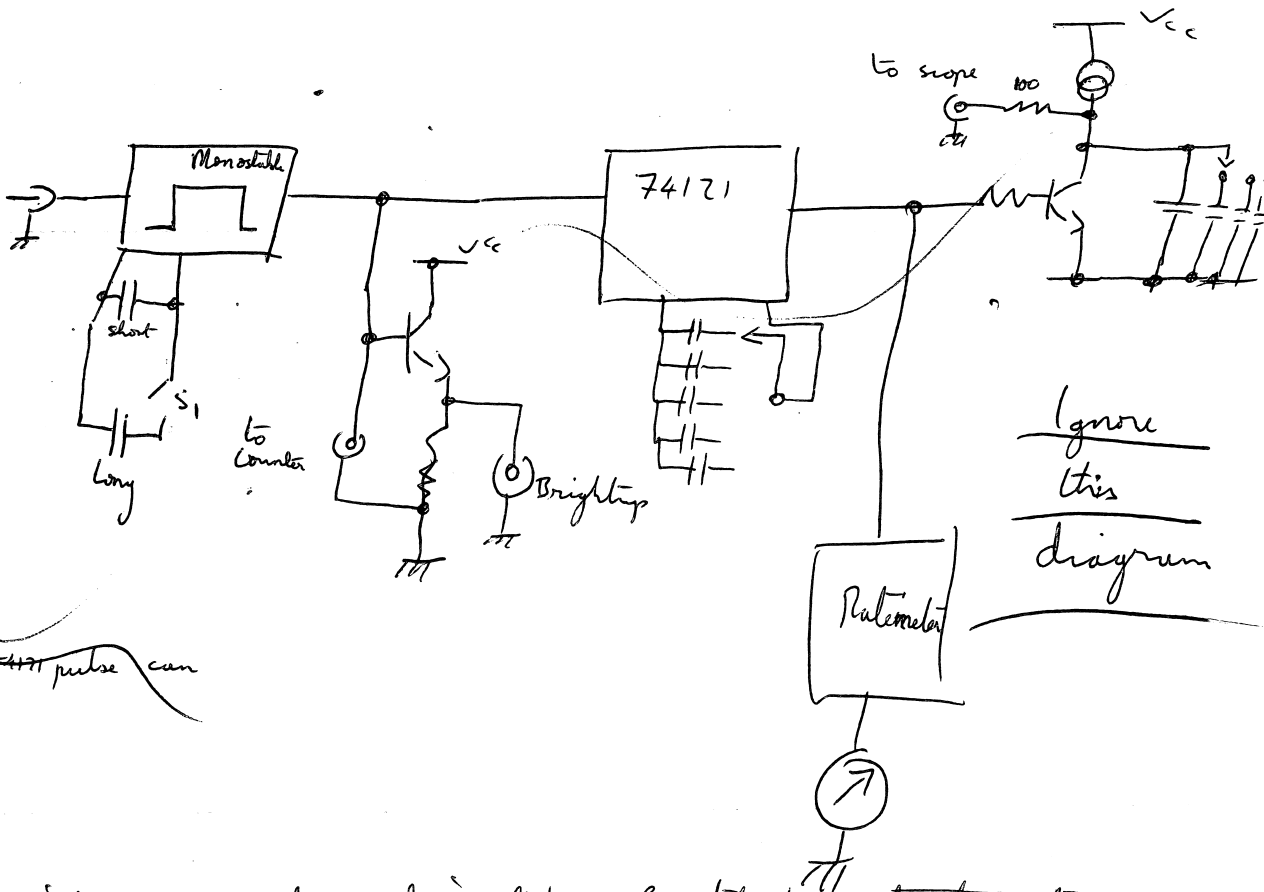 Vcc
to scope
100
Monostable
74121
Vcc
short
S1
Long
to
Counter
Brightup
Ignore
this
diagram
Ratemeter
74121 pulse can